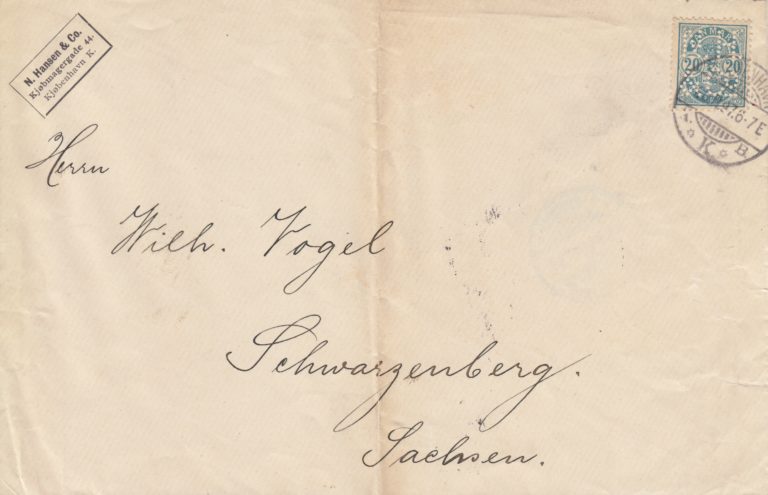 N. Hansen & Co.
Kjøbmagergade 44.
Kjøbenhavn K.
DANMARK
20 20
6-7E
K. B.
Herrn
Wilh. Vogel
Schwarzenberg.
Sachsen.